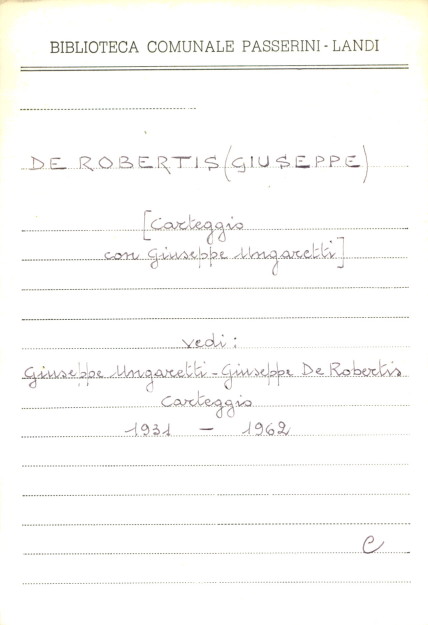 BIBLIOTECA COMUNALE PASSERINI - LANDI
DE ROBERTIS (GIUSEPPE)
[Carteggio
con Giuseppe Ungaretti]
vedi:
Giuseppe Ungaretti - Giuseppe De Robertis
Carteggio
1931 - 1962
C